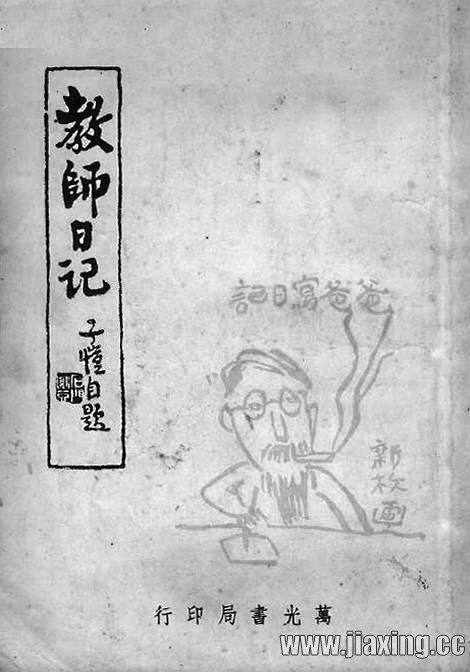 教師日记
子愷自题
爸爸寫日記
新枚画
萬光書局印行
www.jiaxing.cc